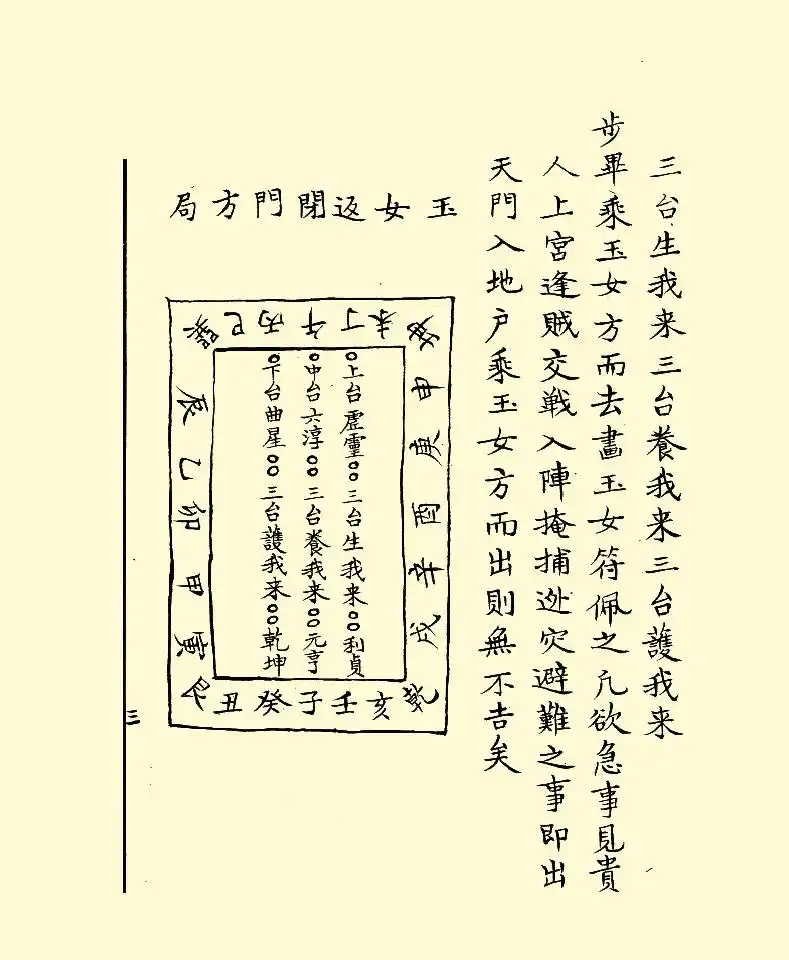 三台生我来三台養我来三台護我来
步畢乘玉女方而去畫玉女符佩之凡欲急事見貴
人上宮逢賊交戦入陣掩捕迯灾避難之事即出
天門入地户乘玉女方而出則無不吉矣
玉女返閉門方局
坤未丁午丙巳巽
申庚酉辛戌
○上台虚靈○○三台生我来○○利貞
○中台六淳○○三台養我来○○元亨
○下台曲星○○三台護我来○○乾坤
辰乙卯甲寅
乾亥壬子癸丑艮
三